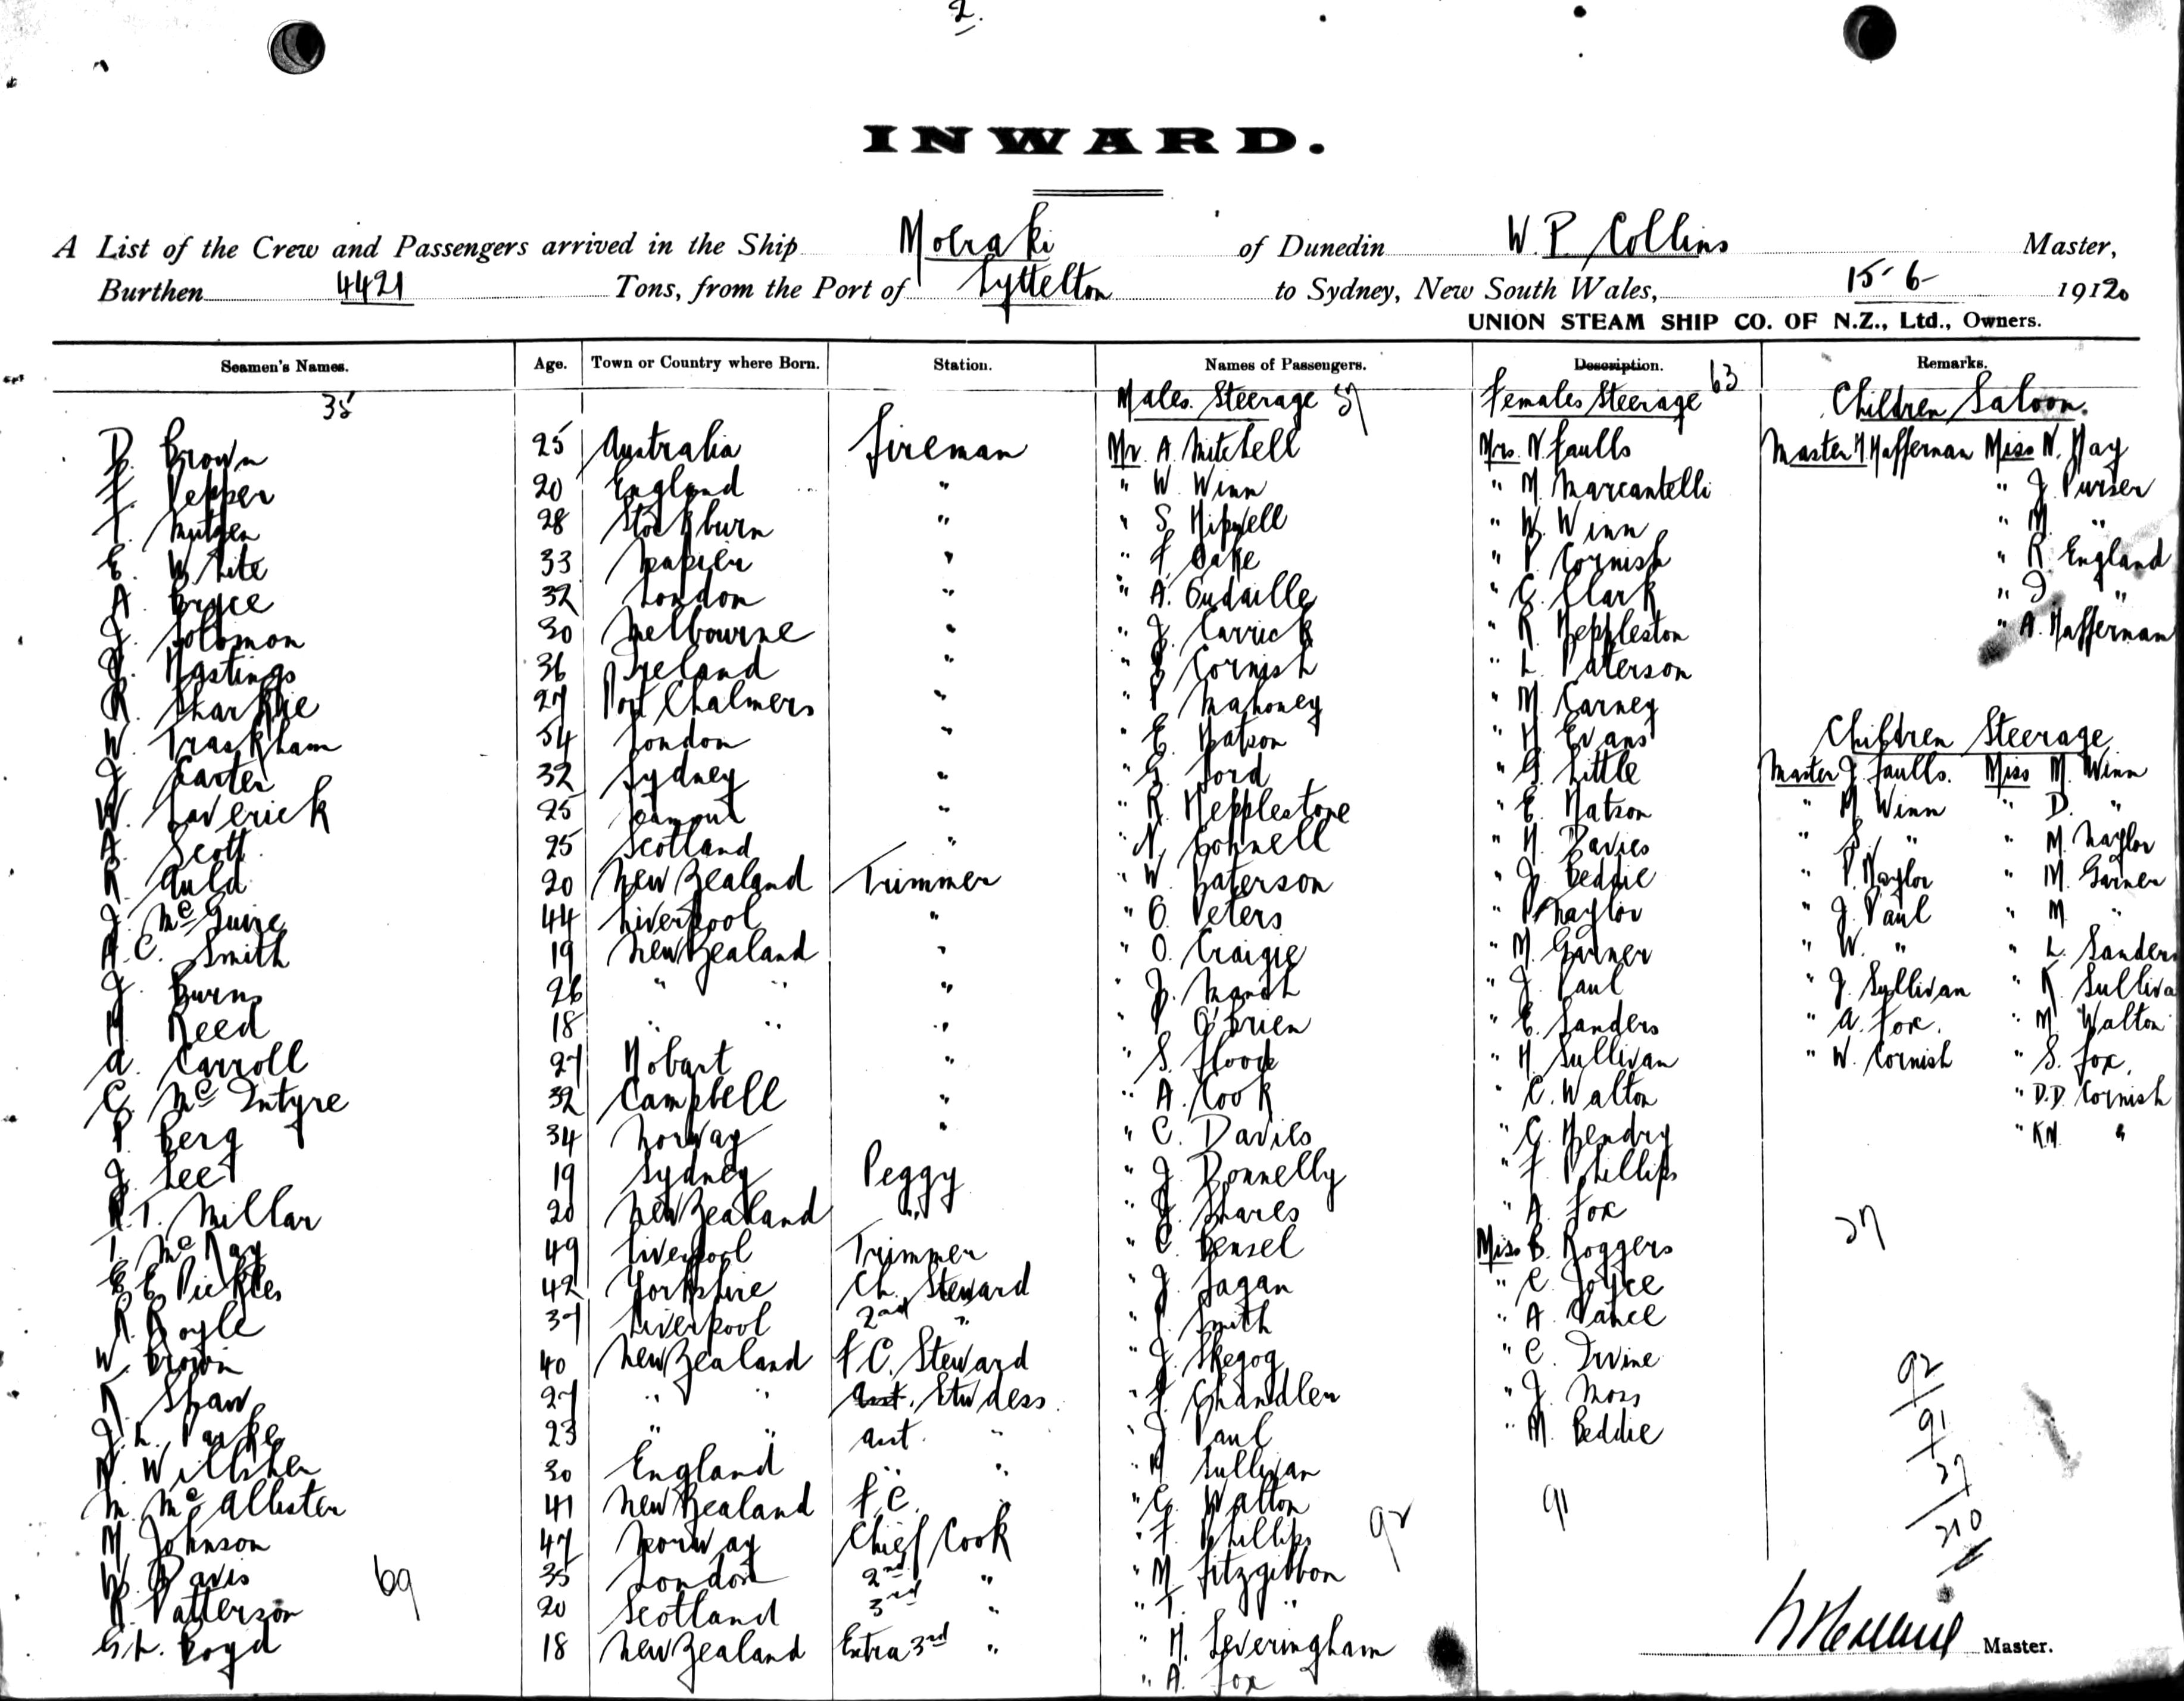 2.
INWARD.
A List of the Crew and Passengers arrived in the Ship Moeraki of Dunedin W. P. Collins Master,
Burthen 4421 Tons, from the Port of Lyttelton to Sydney, New South Wales, 15-6- 1912o
UNION STEAM SHIP CO. OF N.Z., Ltd., Owners.
Seamen's Names. Age. Town or Country where Born. Station. Names of Passengers. Description. 63 Remarks.
35 Males. Steerage 57 Females Steerage Children Saloon.
D. Brown 25 Australia Fireman Mr. A. Mitchell Mrs. N. Faulls Master Haffernan Miss N. Hay
Pepper 20 England " " W. Winn " M. Marcantelli " J. Purser
28 " " S. " W. Winn " M. "
E. White 33 Napier " " F. " P. Cornish " R. England
A. Bryce 32 London " " A. " C. Clark " J "
J. Solomon 30 Melbourne " " J. Carrick " R. Heppleston " A. Haffernan
J. Hastings 36 Ireland " " P Cornish " L. Paterson
R. Sharkie 27 Port Chalmers " " P Mahoney " M. Carney
W. Traskham 54 London " " E. Hatson " H Evans Children Steerage
J. Carter 32 Sydney " " G. Ford " G. Little Master J. Faulls. Miss M. Winn
W. Laverick 25 " " R. Hepplestone " E. Hatson " H Winn " D. "
A. Scott 25 Scotland " " N. " H. Davies " S. " " M. Naylor
R. Auld 20 New Zealand Trimmer " W. Paterson " J. Beddie " P. Naylor " M. Garner
J. McGuire 44 Liverpool " " O. Peters " P Naylor " J. Paul " M "
A. C. Smith 19 New Zealand " " O. Craigie " M. Garner " W. " " L. Sanders
J. Burns 26 " " " " J. " J. Paul " J. Sullivan " K. Sulliva
H Reed 18 " " " " P O'Brien " E. Sanders " A. Fox. " M Walton
A. Carroll 27 Hobart " " S. Flood " H Sullivan " W. Cornish " S. Fox.
C. McIntyre 32 Campbell " " A. Cook " C. Walton " D.D. Cornish
P Berg 34 Norway " " C. Davies " G. Hendry " K.M. "
J. Lee 19 Sydney Peggy " J. Donnelly " F Phillips
R. T. Millar 20 New Zealand " " J. Shares " A Fox
T. McKay 49 Liverpool Trimmer " C. Bensel Miss B. Roggers 27
E E Pickles 42 Yorkshire Ch. Steward " J. Fagan " C. Joyce
R Royle 37 Liverpool 2nd " " P Smith " A Vance
W. Brown 40 New Zealand F C. Steward " J. Skegog " C. Irvine 92
Shaw 27 " " Stwdess. " F Chandler " J. Moss 91
J. L. Parke 23 " " asst. " " J Paul " M. Beddie 27
Willshen 30 England " " " H Sullivan 210
M. McAllister 41 New Zealand F.C. " " G. Walton 91
M Johnson 47 Norway Chief Cook " F. Phillips 92
W. Davis 69 35 London 2nd " " M. Fitzgibbon
R. Patterson 20 Scotland 3rd " " T. "
G. L. Boyd 18 New Zealand Extra 3rd " " H. Leveringham Master.
" A. Fox